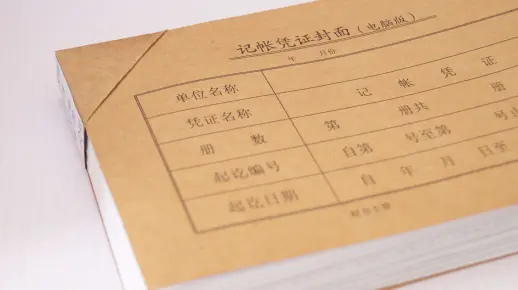 记帐凭证封面（电脑版）
年 月份
单位名称
凭证名称 记帐凭证
册数 第 册共 册
起讫编号 自第 号至第 号止
起讫日期 自 年 月 日至